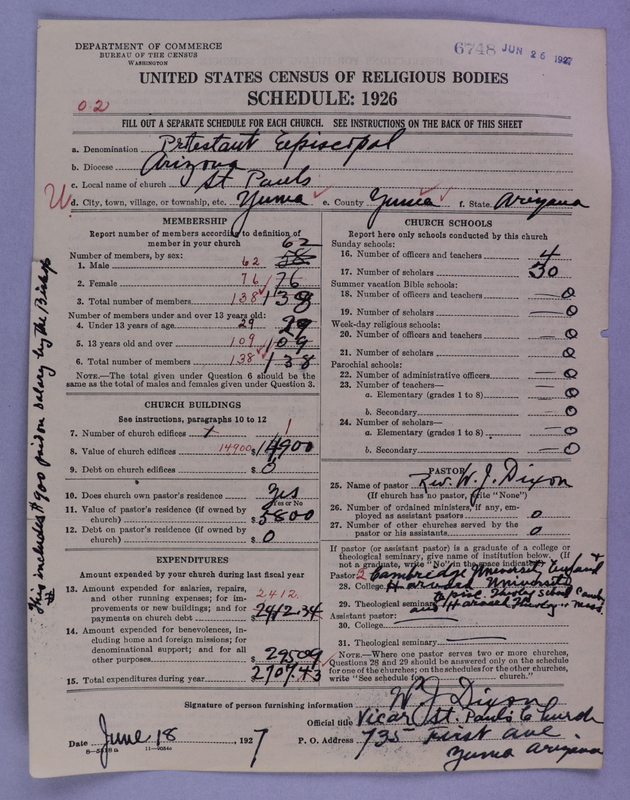 DEPARTMENT OF COMMERCE
BUREAU OF THE CENSUS
WASHINGTON
6748 JUN 26 1927
UNITED STATES CENSUS OF RELIGIOUS BODIES
SCHEDULE: 1926
02
FILL OUT A SEPARATE SCHEDULE FOR EACH CHURCH. SEE INSTRUCTIONS ON THE BACK OF THIS SHEET
a. Denomination Protestant Episcopal
b. Diocese Arizona
c. Local name of church St Pauls
d. City, town, village, or township, etc. Yuma e. County Yuma f. State Arizona
MEMBERSHIP
Report number of members according to definition of member in your church
Number of members, by sex: 62
1. Male 62 58
2. Female 76 76
3. Total number of members 138 138
Number of members under and over 13 years old:
4. Under 13 years of age 29 29
5. 13 years old and over 109 109
6. Total number of members 138 138
NOTE.—The total given under Question 6 should be the same as the total of males and females given under Question 3.
CHURCH BUILDINGS
See instructions, paragraphs 10 to 12
7. Number of church edifices 1
8. Value of church edifices 14900 $14900
9. Debt on church edifices $0
10. Does church own pastor's residence yes
Yes or No
11. Value of pastor's residence (if owned by church) $5800
12. Debt on pastor's residence (if owned by church) $0
EXPENDITURES
Amount expended by your church during last fiscal year
13. Amount expended for salaries, repairs, and other running expenses; for improvements or new buildings; and for payments on church debt 2412. $2412.34
14. Amount expended for benevolences, including home and foreign missions; for denominational support; and for all other purposes $295.09
15. Total expenditures during year 2707.43
This includes $900 paid on salary by the Bishop
CHURCH SCHOOLS
Report here only schools conducted by this church
Sunday schools:
16. Number of officers and teachers 4
17. Number of scholars 30
Summer vacation Bible schools:
18. Number of officers and teachers — 0
19. Number of scholars — 0
Week-day religious schools:
20. Number of officers and teachers — 0
21. Number of scholars — 0
Parochial schools:
22. Number of administrative officers — 0
23. Number of teachers—
a. Elementary (grades 1 to 8) — 0
b. Secondary — 0
24. Number of scholars—
a. Elementary (grades 1 to 8) — 0
b. Secondary — 0
PASTOR
25. Name of pastor Rev. W. J. Dixon
(If church has no pastor, write "None")
26. Number of ordained ministers, if any, employed as assistant pastors 0
27. Number of other churches served by the pastor or his assistants 0
If pastor (or assistant pastor) is a graduate of a college or theological seminary, give name of institution below. (If not a graduate, write "No" in the space indicated)
Pastor: 2 Cambridge University England &
28. College Harvard University
29. Theological seminary Episc. Theoly School Camb
and Harvard Theoly Mass.
Assistant pastor:
30. College
31. Theological seminary
NOTE.—Where one pastor serves two or more churches, Questions 28 and 29 should be answered only on the schedule for one of the churches; on the schedules for the other churches, write "See schedule for church."
Signature of person furnishing information W J Dixon
Official title Vicar St. Pauls Church
Date June 18, 1927 P. O. Address 735 First Ave.
Yuma Arizona